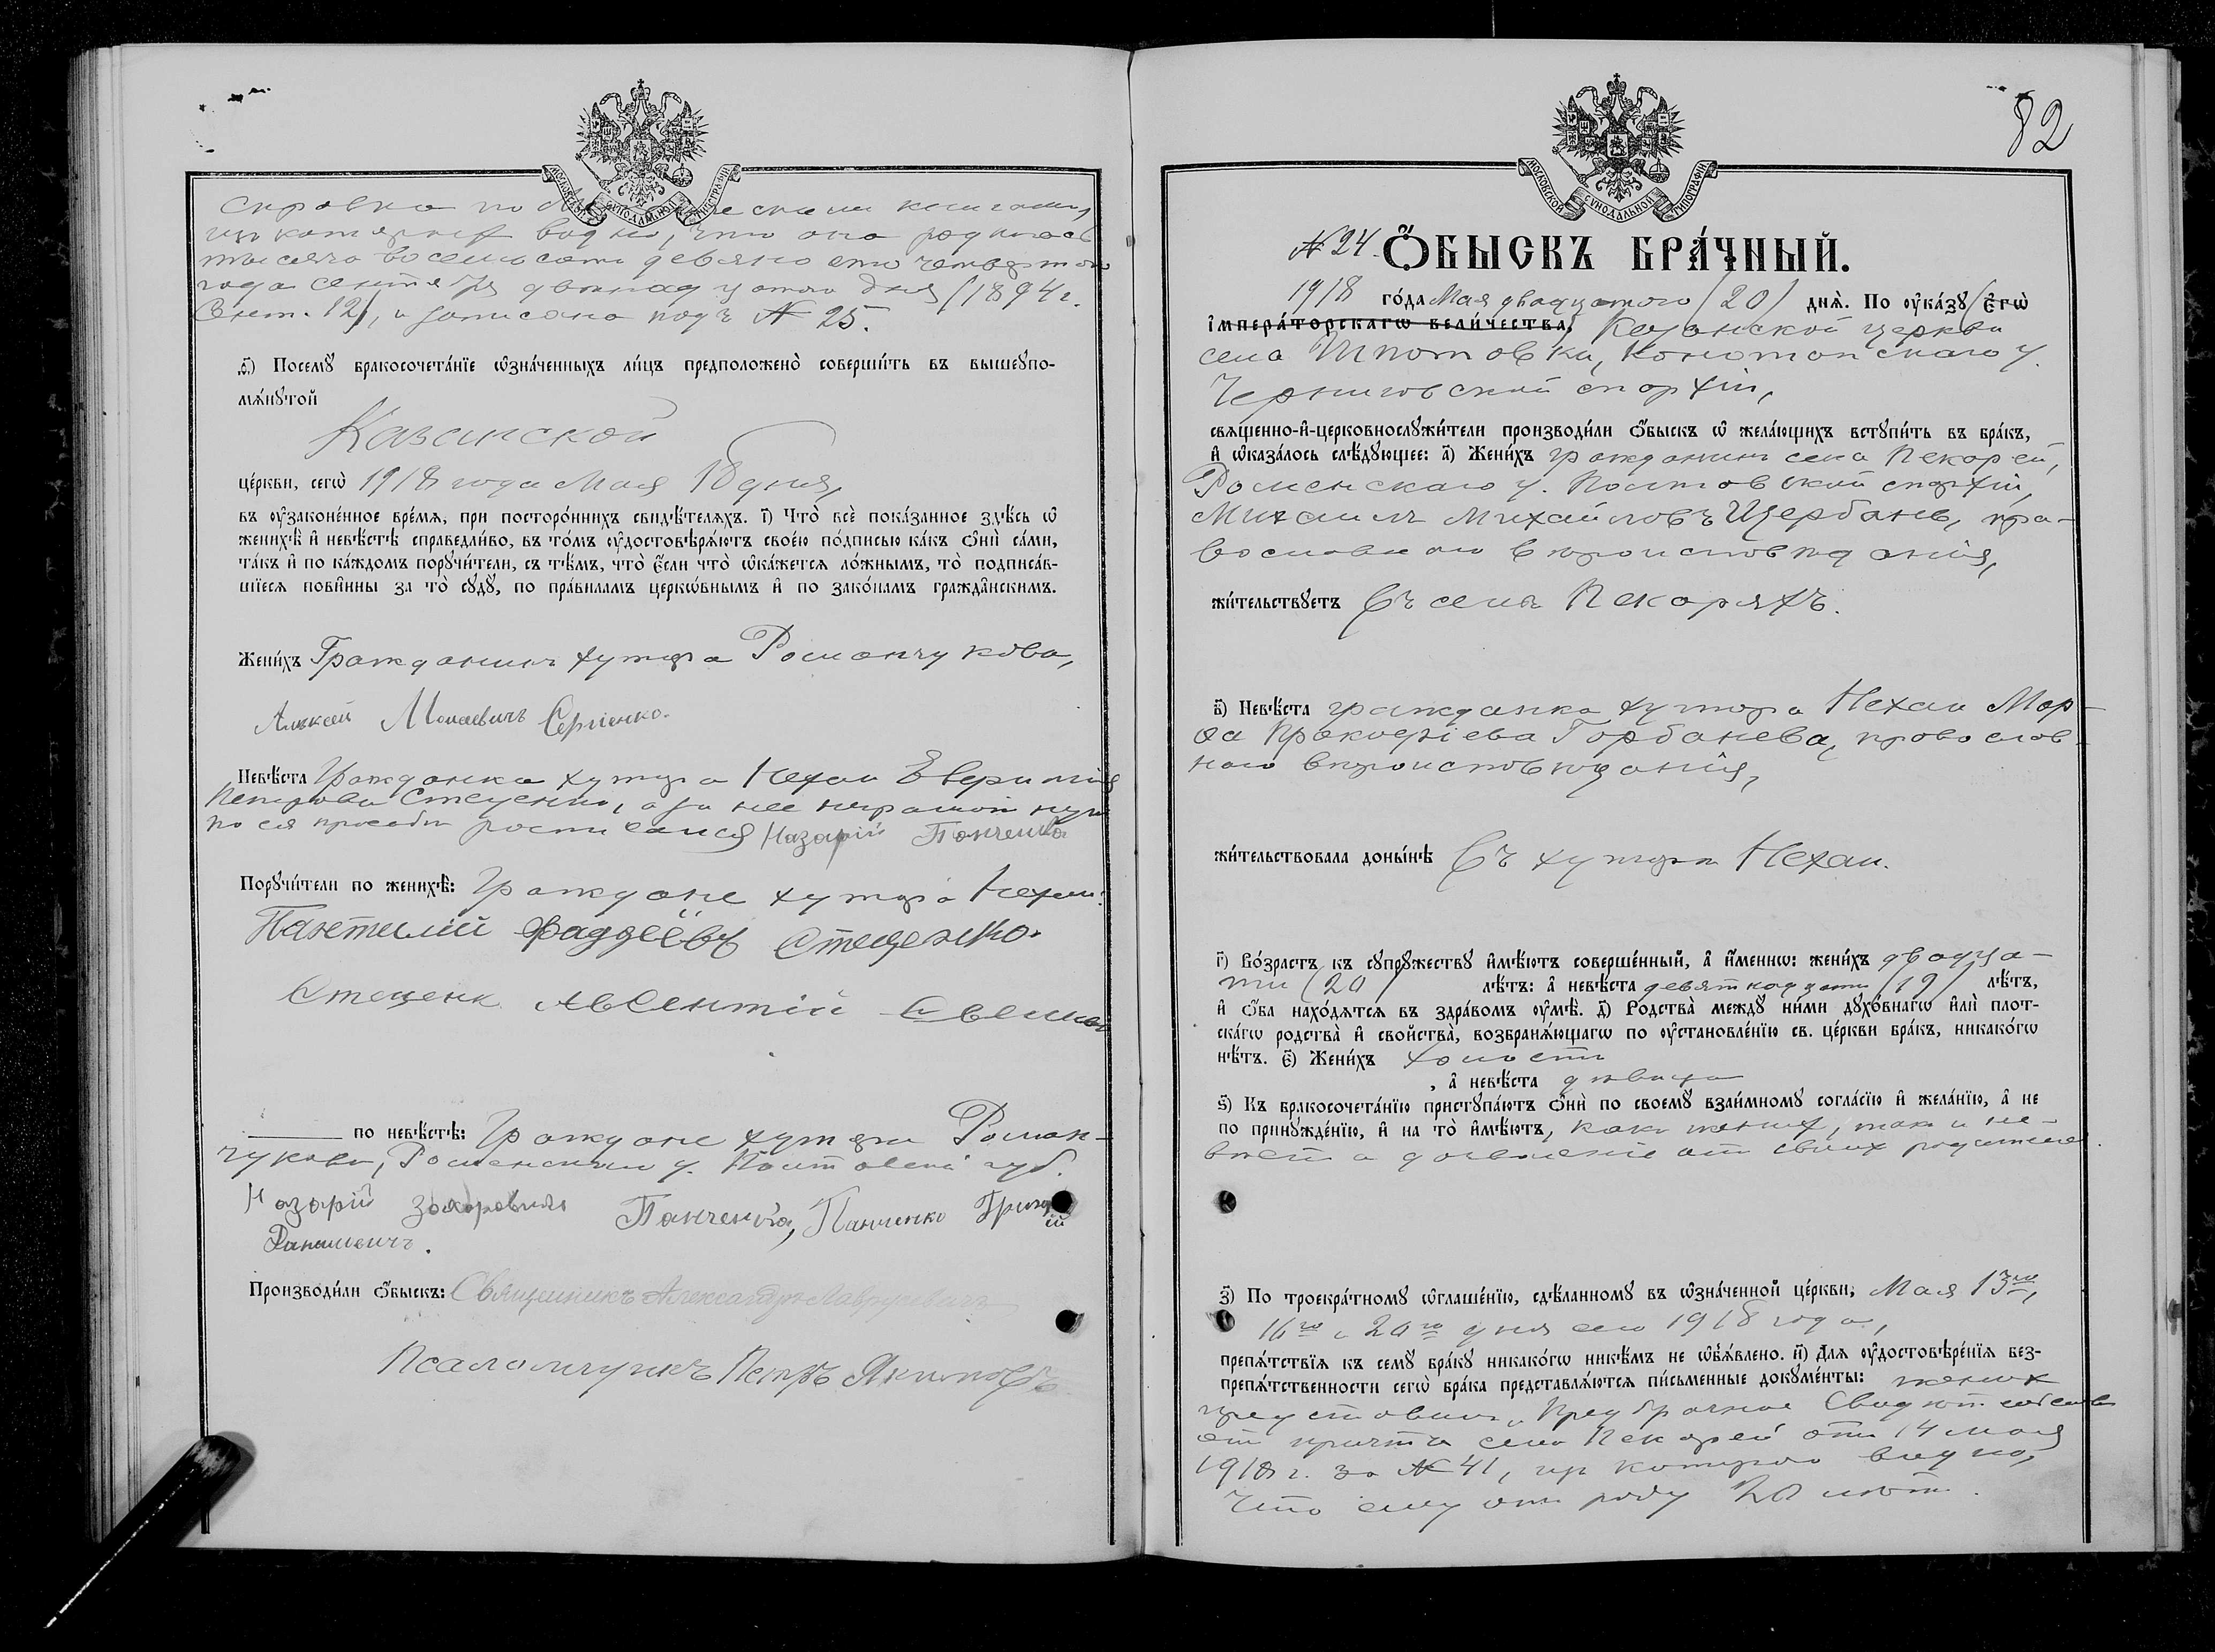 МОСКОВСКОЙ СѴНОДАЛЬНОЙ ТИПОГРАФІИ
справка по книгамъ,
изъ которыхъ видно, что она родилась
тысяча восемьсотъ девяносто четвертаго
года сентября двенадцатаго дня (1894 г.
Сент. 12), и записана подъ № 25.
Посемꙋ бракосочета́нїе ѡзна́ченныхъ ли́цъ предположено̀ соверши́ть въ вышеꙋпо-
мѧ́нꙋтой
Казанской
це́ркви, сегѡ̀ 1918 года Мая 18 дня,
въ ᲂу҆зако́ненное вре́мѧ, при посторо́ннихъ свидѣ́телѧхъ. і҃) Что̀ всѐ пока́занное здѣ́сь ѡ҆
женихѣ̀ и҆ невѣ́стѣ справедли́во, въ то́мъ ᲂу҆достовѣрѧ́ютъ свое́ю по́дписью ка́къ ѻ҆нѝ са́ми,
та́къ и҆ по ка́ждомъ порꙋчи́тели, съ тѣ́мъ, что̀ є҆́сли что̀ ѡ҆ка́жется ло́жнымъ, то̀ подписа́в-
шїеся пови́нны за то̀ сꙋдꙋ̀, по пра́виламъ церко́внымъ и҆ по зако́намъ гражда́нскимъ.
Жени́хъ Гражданинъ хутора Романчукова,
Алексей Моисеевичъ Сергіенко.
Невѣ́ста Гражданка хутора Нехаи
Петрова Стеценко, а за нее неграмотную
по ея просьбѣ росписался Назарій Панченко
Порꙋчи́тели по женихѣ̀: Граждане хутора Нехаи:
Пантелій Фаддеевъ Стеценко.
Стеценк Авсентій
по невѣ́стѣ: Граждане хутора Роман-
чукова, Роменскаго у. Полтавской губ.
Назарій Захаровичъ Панченко, Панченко Григорій
Производи́ли ѻ҆́быскъ: Священникъ Александръ
Псаломщикъ Петръ
82
МОСКОВСКОЙ СѴНОДАЛЬНОЙ ТИПОГРАФІИ
№ 24. Ѻ҆́БЫСКЪ БРА́ЧНЫЙ.
1918 го́да Мая двадцатого (20) днѧ̀. По ᲂу҆ка́зꙋ (Є҆гѡ̀
І҆мпера́торскагѡ вели́чества, Казанской церкви
села Шпотовки, Конотопскаго у.
Черниговской епархіи,
свѧще́нно-и҆-церковнослꙋжи́тели производи́ли ѻ҆́быскъ ѡ҆ жела́ющихъ встꙋпи́ть въ бра́къ,
и҆ ѡ҆каза́лось слѣ́дꙋющее: а҃) Жени́хъ гражданинъ села Пекарей,
Роменскаго у. Полтавской епархіи,
Михаилъ Михайловъ Щербань, пра-
вославнаго вероисповѣданія,
жи́тельствꙋетъ Въ селѣ Пекаряхъ.
в҃) Невѣ́ста гражданка хутора Нехаи Мар-
ѳа Прокофіева Горбанева, православ-
наго вѣроисповѣданія,
жи́тельствовала доны́нѣ Въ хуторѣ Нехаи.
г҃) Во́зрастъ къ сꙋпрꙋ́жествꙋ и҆мѣ́ютъ соверше́нный, а҆ и҆́меннѡ: жени́хъ двадца-
ти (20) лѣ́тъ: а҆ невѣ́ста девятнадцати (19) лѣ́тъ,
и҆ ѻ҆́ба нахо́дѧтсѧ въ здра́вомъ ᲂу҆мѣ̀. д҃) Родства̀ междꙋ̀ ни́ми дꙋхо́внагѡ и҆лѝ плот-
ска́гѡ родства̀ и҆ свойства̀, возбранѧ́ющагѡ по ᲂу҆становле́нїю св. це́ркви бра́къ, никако́гѡ
нѣ́тъ. є҃) Жени́хъ холостъ
, а҆ невѣ́ста дѣвица
ѕ҃) Къ бракосочета́нїю пристꙋпа́ютъ ѻ҆нѝ по своемꙋ̀ взаи́мномꙋ согла́сїю и҆ жела́нїю, а҆ не
по принꙋжде́нїю, и҆ на то̀ и҆мѣ́ютъ, какъ женихъ, такъ и не-
вѣста дозволеніе отъ своихъ родителей.
з҃) По троекра́тномꙋ ѡ҆глаше́нїю, сдѣ́ланномꙋ въ ѡ҆зна́ченной це́ркви, Мая 13го,
16го и 20го дня сего 1918 года,
препѧ́тствїя къ семꙋ̀ бра́кꙋ никако́гѡ никѣ́мъ не ѡ҆б̾ѧ́влено. и҃) Для ᲂу҆достовѣре́нїя без-
препѧ́тственности сегѡ̀ бра́ка представлѧ́ются пи́сьменные докꙋме́нты: женихъ
представилъ Предбрачное Свидѣт.
отъ причта села Пекарей отъ 14 мая
1918 г. за № 41, изъ котораго видно,
что ему отъ роду 20 лѣтъ.